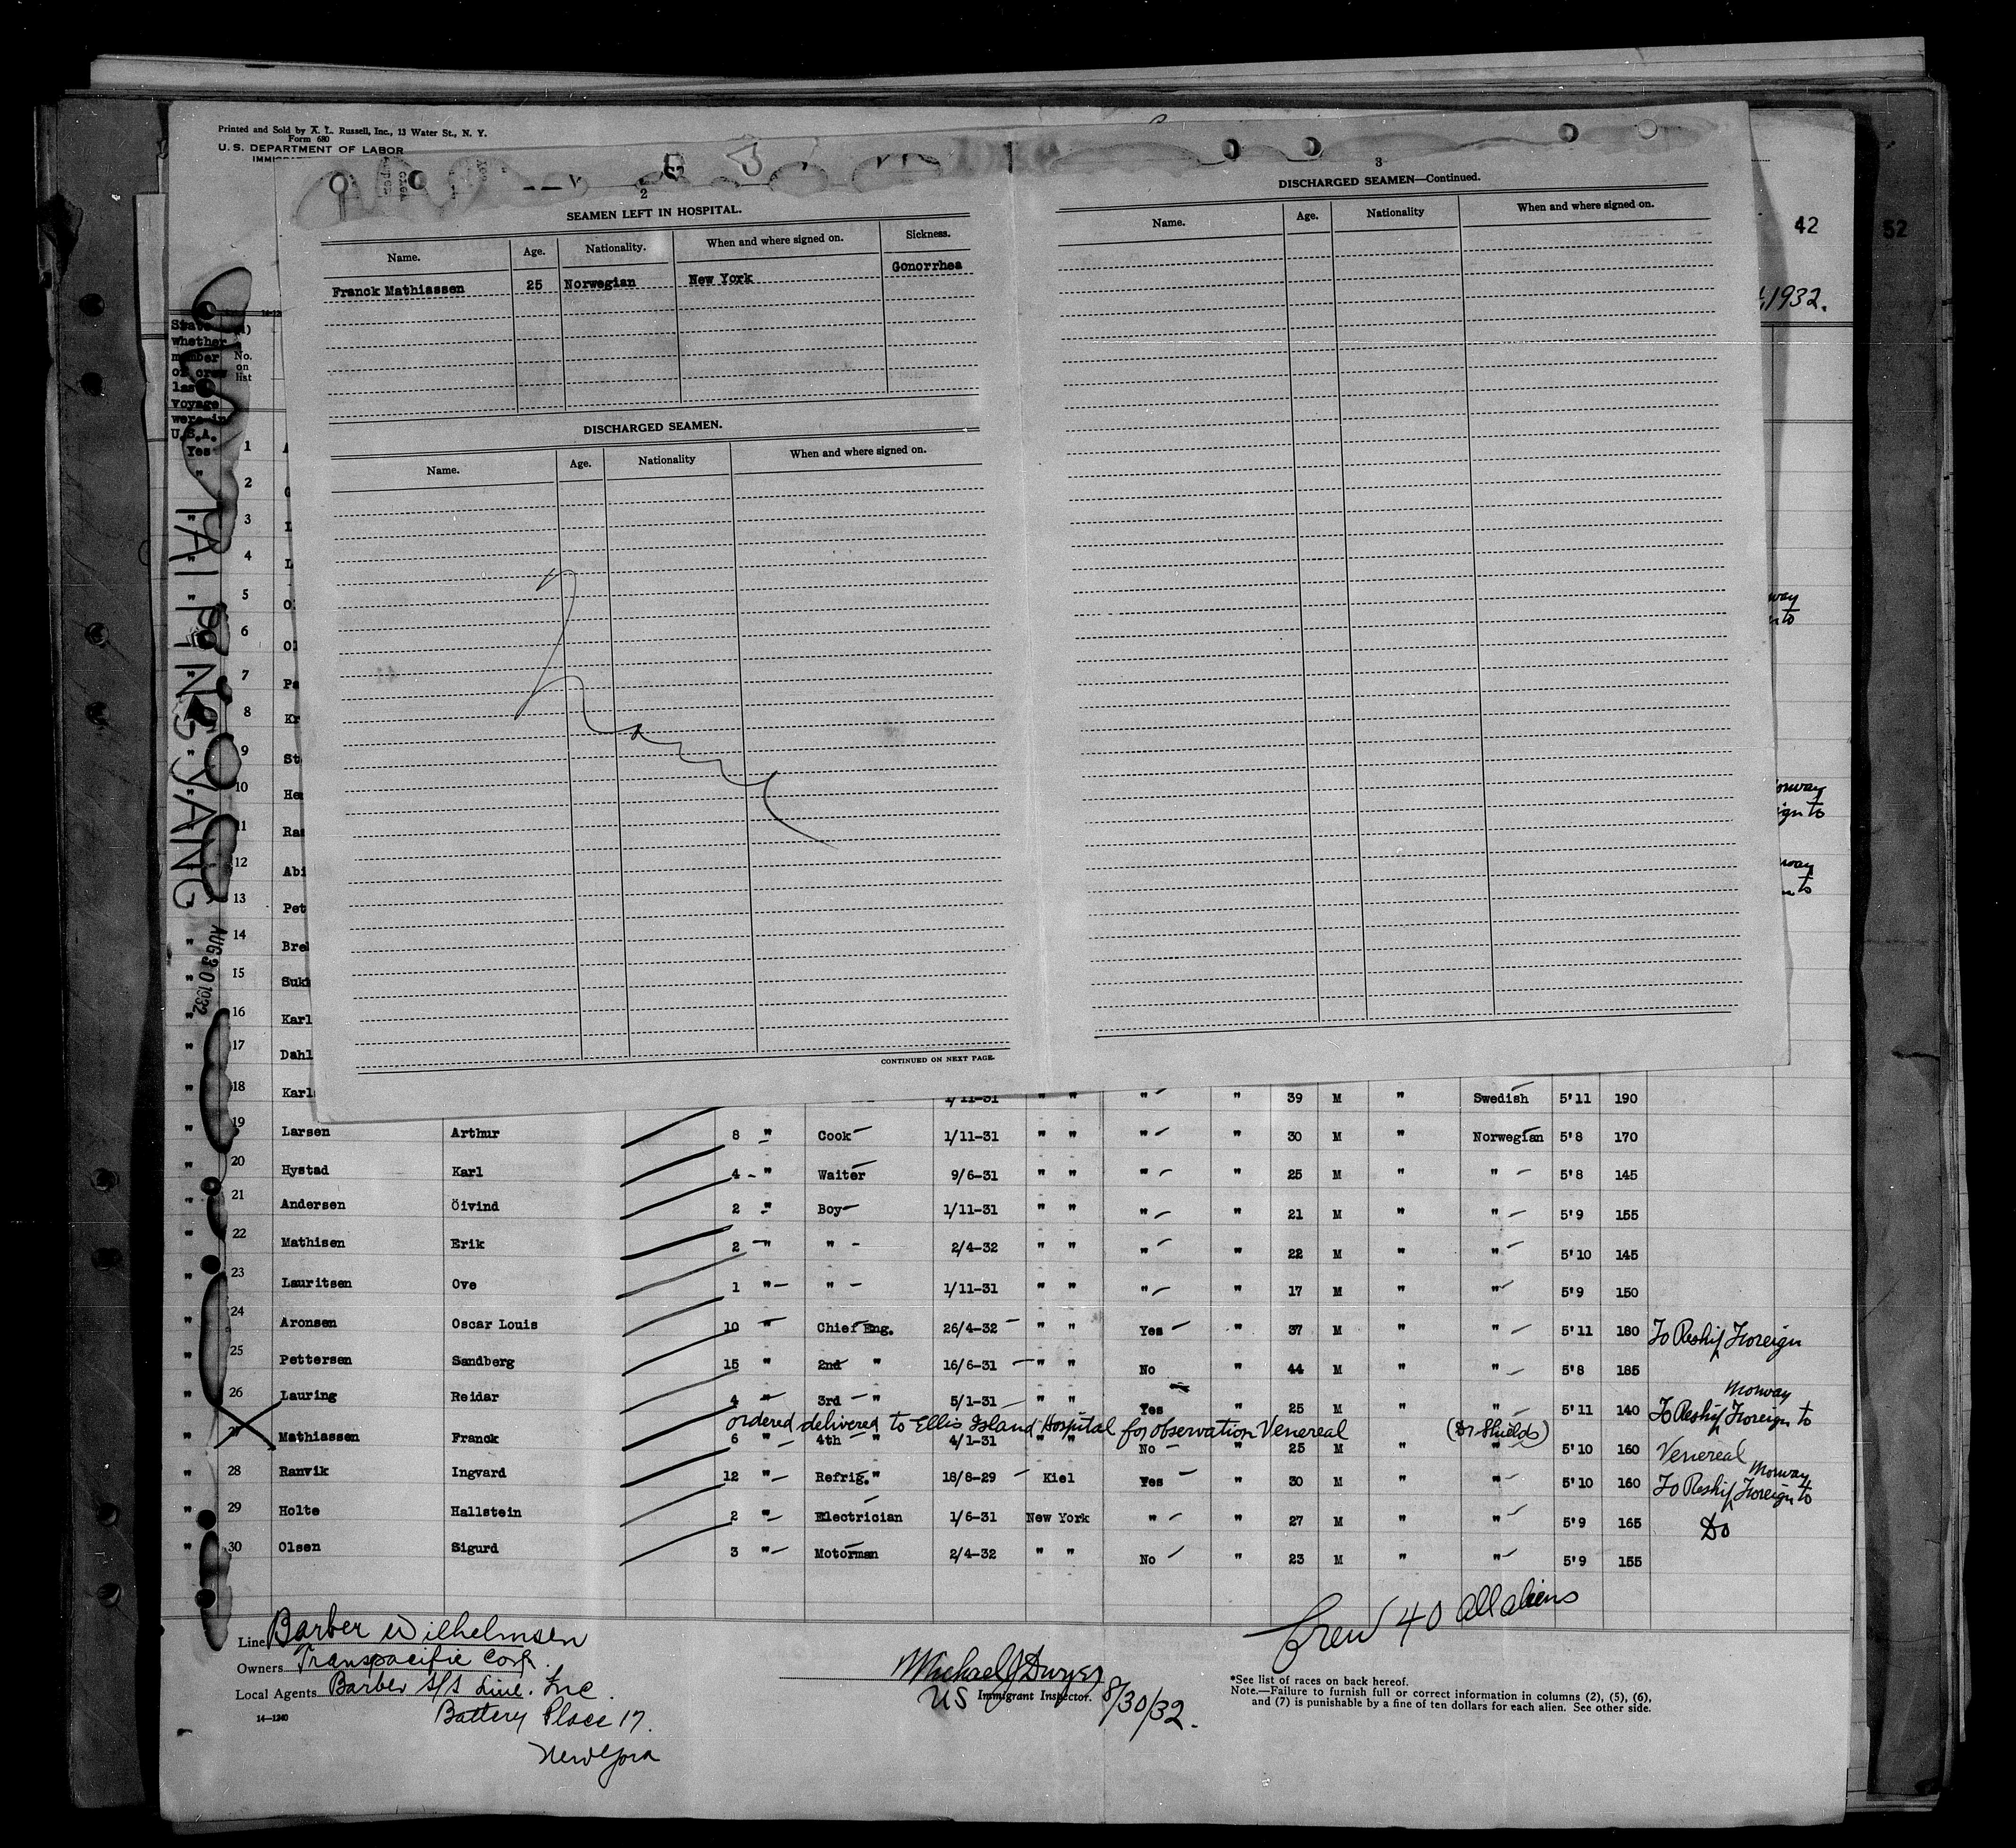 Printed and Sold by A. L. Russell, Inc., 13 Water St., N. Y.
Form 680
U. S. DEPARTMENT OF LABOR
2
SEAMEN LEFT IN HOSPITAL.
Name. Age. Nationality. When and where signed on. Sickness.
Franck Mathiassen 25 Norwegian New York Gonorrhea
DISCHARGED SEAMEN.
Name. Age. Nationality When and where signed on.
CONTINUED ON NEXT PAGE.
3
DISCHARGED SEAMEN—Continued.
Name. Age. Nationality When and where signed on.
42
52
1932.
State (1)
whether
member No.
of crew on
last list
voyage
were in
U.S.A.
Yes 1
" 2
" 3
" 4
" 5
" 6
" 7
" 8
" 9
" 10
" 11
" 12
" 13
" 14
" 15
" 16
" 17 Dahl
" 18 Karl 1/11-31 " " " " 39 M " Swedish 5'11 190
" 19 Larsen Arthur 8 " Cook 1/11-31 " " " " 30 M " Norwegian 5'8 170
" 20 Hystad Karl 4 " Waiter 9/6-31 " " " " 25 M " " 5'8 145
" 21 Andersen Öivind 2 " Boy 1/11-31 " " " " 21 M " " 5'9 155
" 22 Mathisen Erik 2 " " 2/4-32 " " " " 22 M " " 5'10 145
" 23 Lauritsen Ove 1 " " 1/11-31 " " " " 17 M " " 5'9 150
" 24 Aronsen Oscar Louis 10 " Chief Eng. 26/4-32 " " Yes " 37 M " " 5'11 180 To Reship Foreign
" 25 Pettersen Sandberg 15 " 2nd " 16/6-31 " " No " 44 M " " 5'8 185
" 26 Lauring Reidar 4 " 3rd " 5/1-31 " " Yes " 25 M " " 5'11 140 To Reship Foreign to Norway
ordered delivered to Ellis Island Hospital for observation Venereal (Dr Shields)
" 27 Mathiassen Franck 6 " 4th " 4/1-31 " " No " 25 M " " 5'10 160 Venereal
" 28 Ranvik Ingvard 12 " Refrig." 18/8-29 Kiel Yes " 30 M " " 5'10 160 To Reship Foreign to Norway
" 29 Holte Hallstein 2 " Electrician 1/6-31 New York " " 27 M " " 5'9 165 Do
" 30 Olsen Sigurd 3 " Motorman 2/4-32 " " No " 23 M " " 5'9 155
TAI PING YANG
AUG 30 1932
Crew 40 all aliens
Line Barber Wilhelmsen
Owners Transpacific Corp.
Local Agents Barber S/S Line. Inc.
Battery Place 17.
New York
14—1240
Michael J Dwyer
US Immigrant Inspector. 8/30/32.
*See list of races on back hereof.
Note.—Failure to furnish full or correct information in columns (2), (5), (6),
and (7) is punishable by a fine of ten dollars for each alien. See other side.